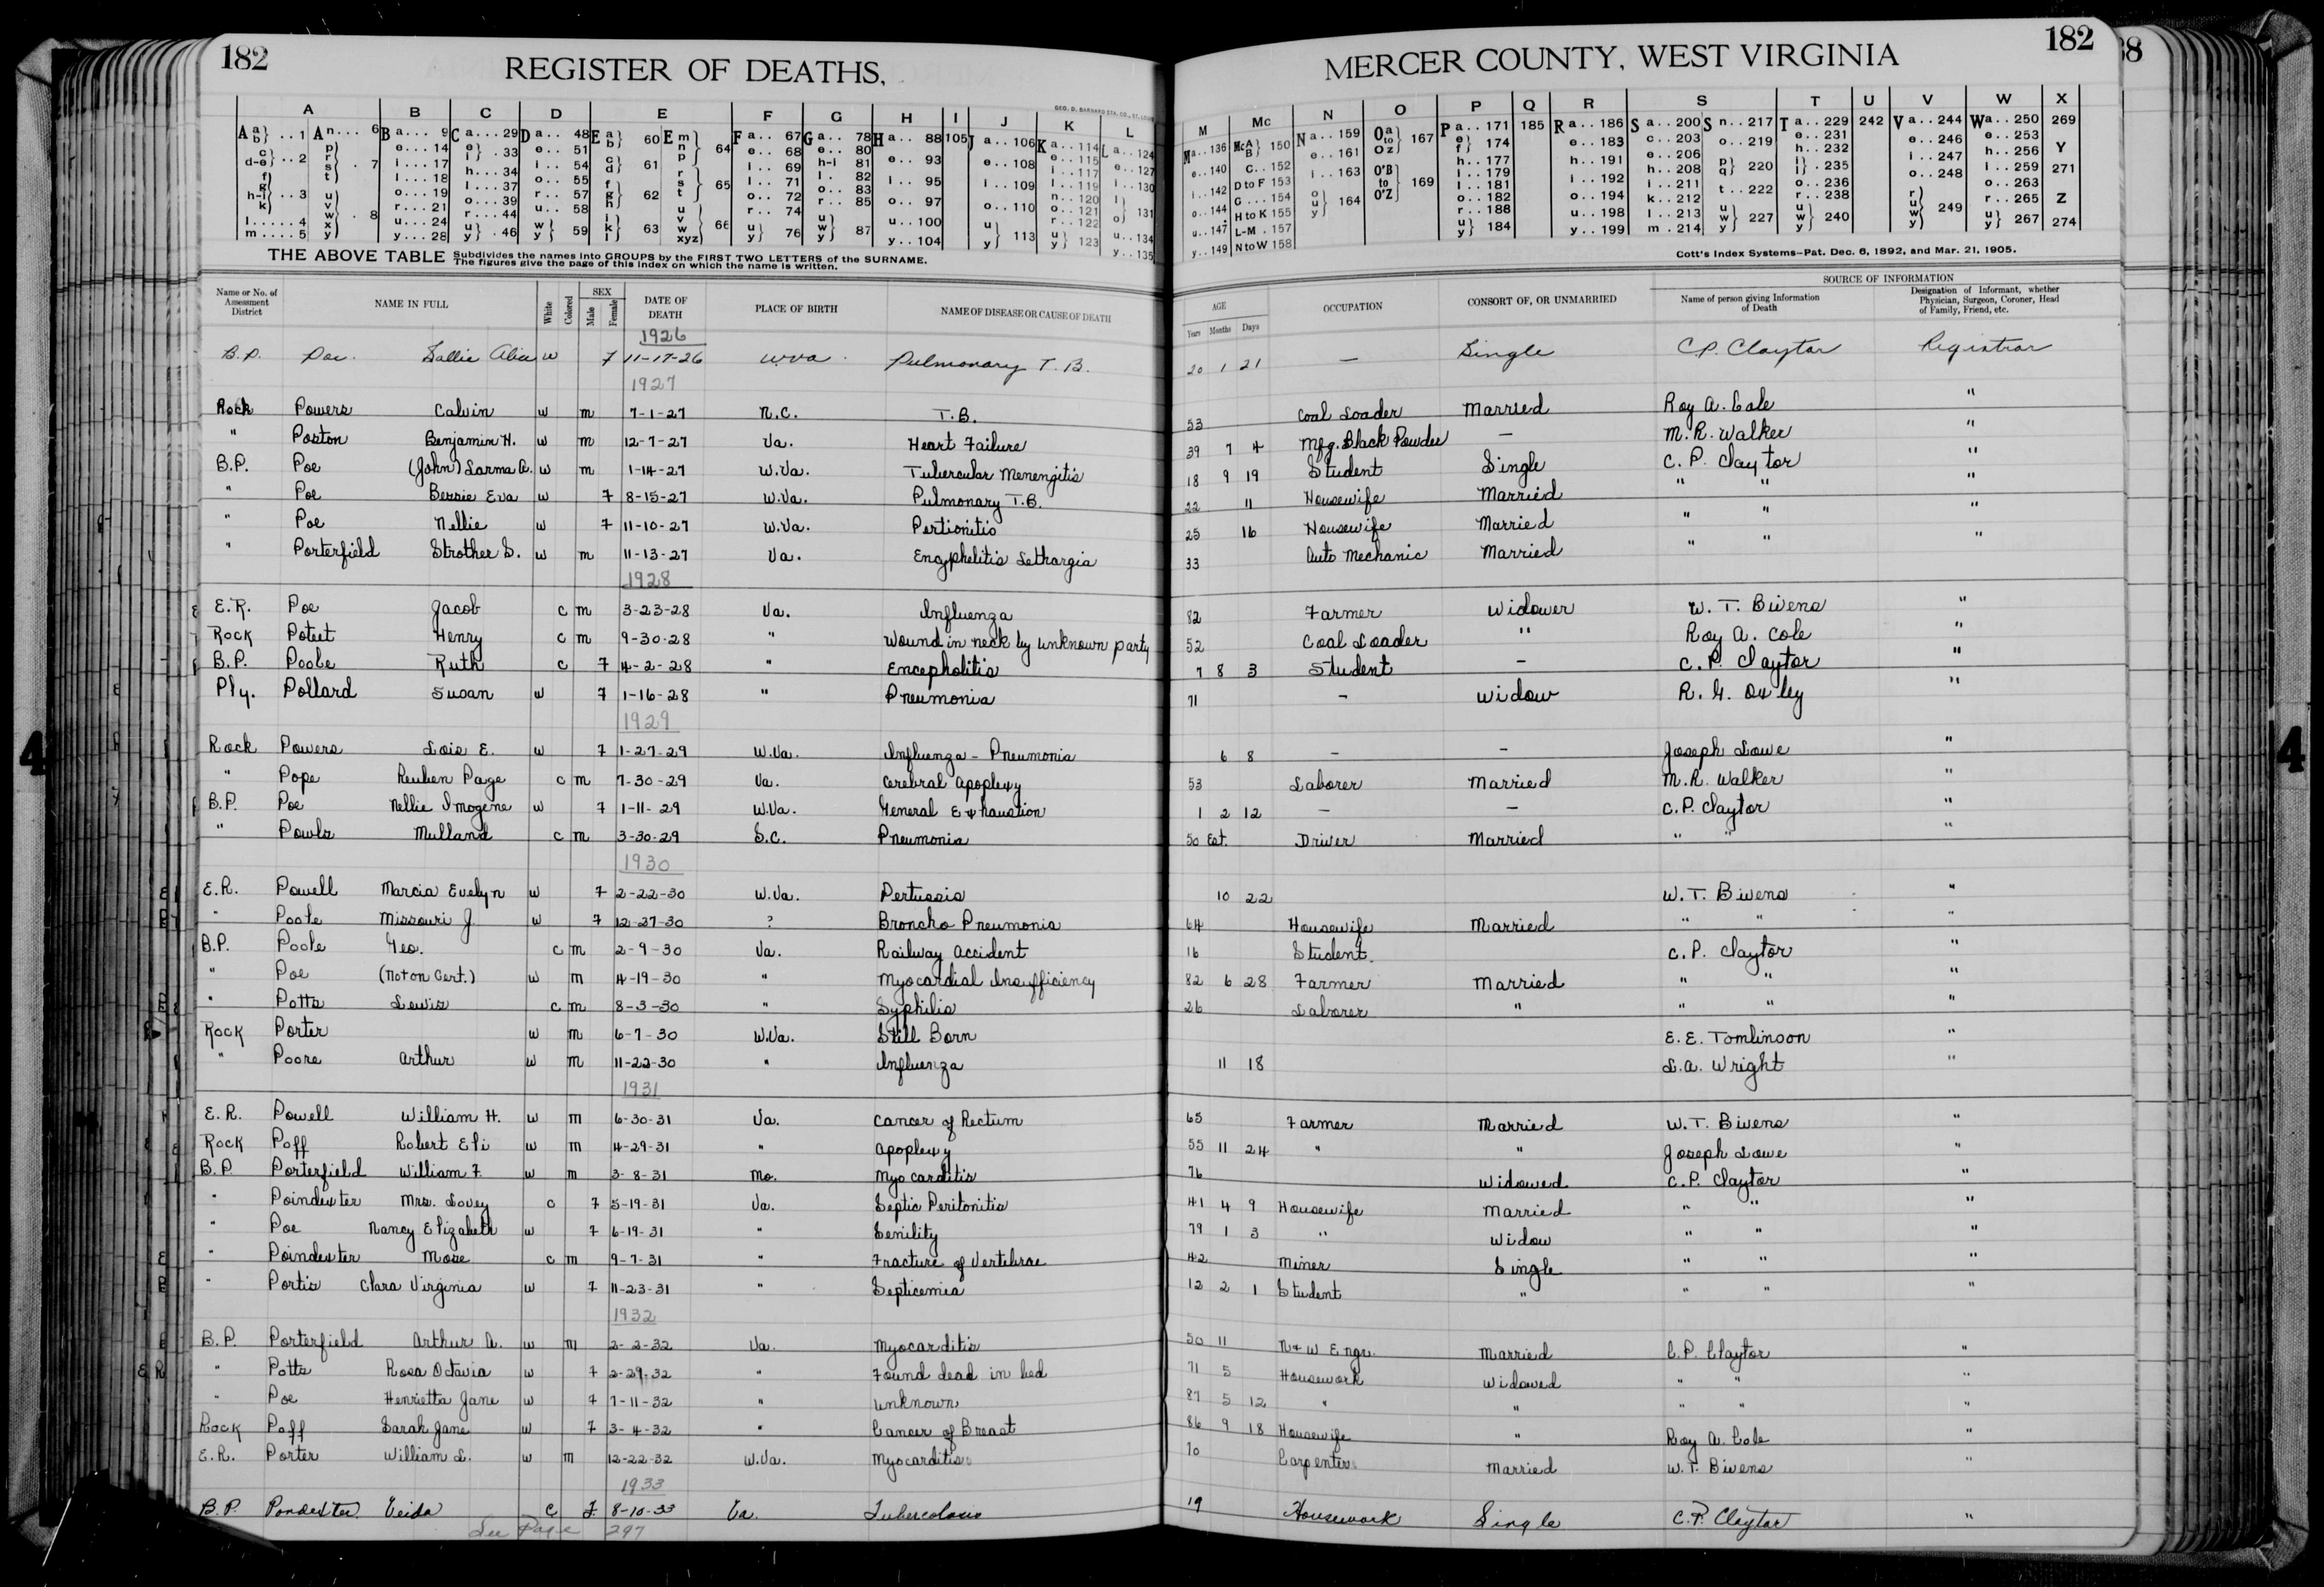 182
REGISTER OF DEATHS,
MERCER COUNTY, WEST VIRGINIA
182
38
GEO. D. BARNARD STA. CO., ST. LOUIS
A B C D E F G H I J K L M Mc N O P Q R S T U V W X
THE ABOVE TABLE Subdivides the names into GROUPS by the FIRST TWO LETTERS of the SURNAME.
The figures give the page of this Index on which the name is written.
Cott's Index Systems—Pat. Dec. 6, 1892, and Mar. 21, 1905.
SOURCE OF INFORMATION
Name or No. of Assessment District NAME IN FULL White Colored SEX Male Female DATE OF DEATH PLACE OF BIRTH NAME OF DISEASE OR CAUSE OF DEATH AGE Years Months Days OCCUPATION CONSORT OF, OR UNMARRIED Name of person giving Information of Death Designation of Informant, whether Physician, Surgeon, Coroner, Head of Family, Friend, etc.
1926
B.P. Poe Sallie Alice w F 11-17-26 W.Va. Pulmonary T.B. 20 1 21 — Single C.P. Claytor Registrar
1927
Rock Powers Calvin w m 7-1-27 N.C. T.B. 53 Coal Loader Married Roy A. Cole "
" Poston Benjamin H. w m 12-7-27 Va. Heart Failure 39 7 4 Mfg. Black Powder — M.R. Walker "
B.P. Poe (John) Larma A. w m 1-14-27 W.Va. Tubercular Menengitis 18 9 19 Student Single C.P. Claytor "
" Poe Bessie Eva w F 8-15-27 W.Va. Pulmonary T.B. 22 11 Housewife Married " " "
" Poe Nellie w F 11-10-27 W.Va. Pertionitis 25 16 Housewife Married " " "
" Porterfield Strother S. w m 11-13-27 Va. Encyphelitis Lethargia 33 Auto Mechanic Married " " "
1928
E.R. Poe Jacob c m 3-23-28 Va. Influenza 82 Farmer Widower W.T. Bivens "
Rock Poteet Henry c m 9-30-28 " Wound in neck by unknown party 52 Coal Loader " Roy A. Cole "
B.P. Poole Ruth c F 4-2-28 " Encepholitis 7 8 3 Student — C.P. Claytor "
Ply. Pollard Susan w F 1-16-28 " Pneumonia 71 — Widow R.G. Oxley "
1929
Rock Powers Lois E. w F 1-27-29 W.Va. Influenza - Pneumonia 6 8 — — Joseph Lowe "
" Pope Reuben Page c m 7-30-29 Va. Cerebral Apoplexy 53 Laborer Married M.R. Walker "
B.P. Poe Nellie Imogene w F 1-11-29 W.Va. General Exhaustion 1 2 12 — — C.P. Claytor "
" Powls Mulland c m 3-30-29 S.C. Pneumonia 50 Est. Driver Married " " "
1930
E.R. Powell Marcia Evelyn w F 2-22-30 W.Va. Pertussis 10 22 W.T. Bivens "
" Poole Missouri J. w F 12-27-30 ? Broncho Pneumonia 64 Housewife Married " " "
B.P. Poole Geo. c m 2-9-30 Va. Railway Accident 16 Student. C.P. Claytor "
" Poe (Not on Cert.) w m 4-19-30 " Myocardial Insufficiency 82 6 28 Farmer Married " " "
" Potts Lewis c m 8-3-30 " Syphilis 26 Laborer " " " "
Rock Porter w m 6-7-30 W.Va. Still Born E.E. Tomlinson "
" Poore Arthur w m 11-22-30 " Influenza 11 18 L.A. Wright "
1931
E.R. Powell William H. w m 6-30-31 Va. Cancer of Rectum 65 Farmer Married W.T. Bivens "
Rock Poff Robert Eli w m 4-29-31 " Apoplexy 55 11 24 " " Joseph Lowe "
B.P. Porterfield William F. w m 3-8-31 Mo. Myocarditis 76 Widowed C.P. Claytor "
" Poindexter Mrs. Lovey c F 5-19-31 Va. Septic Peritonitis 41 4 9 Housewife Married " " "
" Poe Nancy Elizabeth w F 6-19-31 " Senility 79 1 3 " Widow " " "
" Poindexter Mose c m 9-7-31 " Fracture of Vertebrae 42 Miner Single " " "
" Portis Clara Virginia w F 11-23-31 " Septicemia 12 2 1 Student " " " "
1932
B.P. Porterfield Arthur A. w m 2-2-32 Va. Myocarditis 50 11 N & W Engr. Married C.P. Claytor "
" Potts Rosa Octavia w F 2-29-32 " Found dead in bed 71 5 Housework Widowed " " "
" Poe Henrietta Jane w F 7-11-32 " Unknown 87 5 12 " " " " "
Rock Poff Sarah Jane w F 3-4-32 " Cancer of Breast 86 9 18 Housewife " Roy A. Cole "
E.R. Porter William L. w m 12-22-32 W.Va. Myocarditis 70 Carpenter Married W.T. Bivens "
1933
B.P. Pondexter Veida c F 8-10-33 Va. Tuberculosis 19 Housework Single C.P. Claytor "
See Page 297
4
4